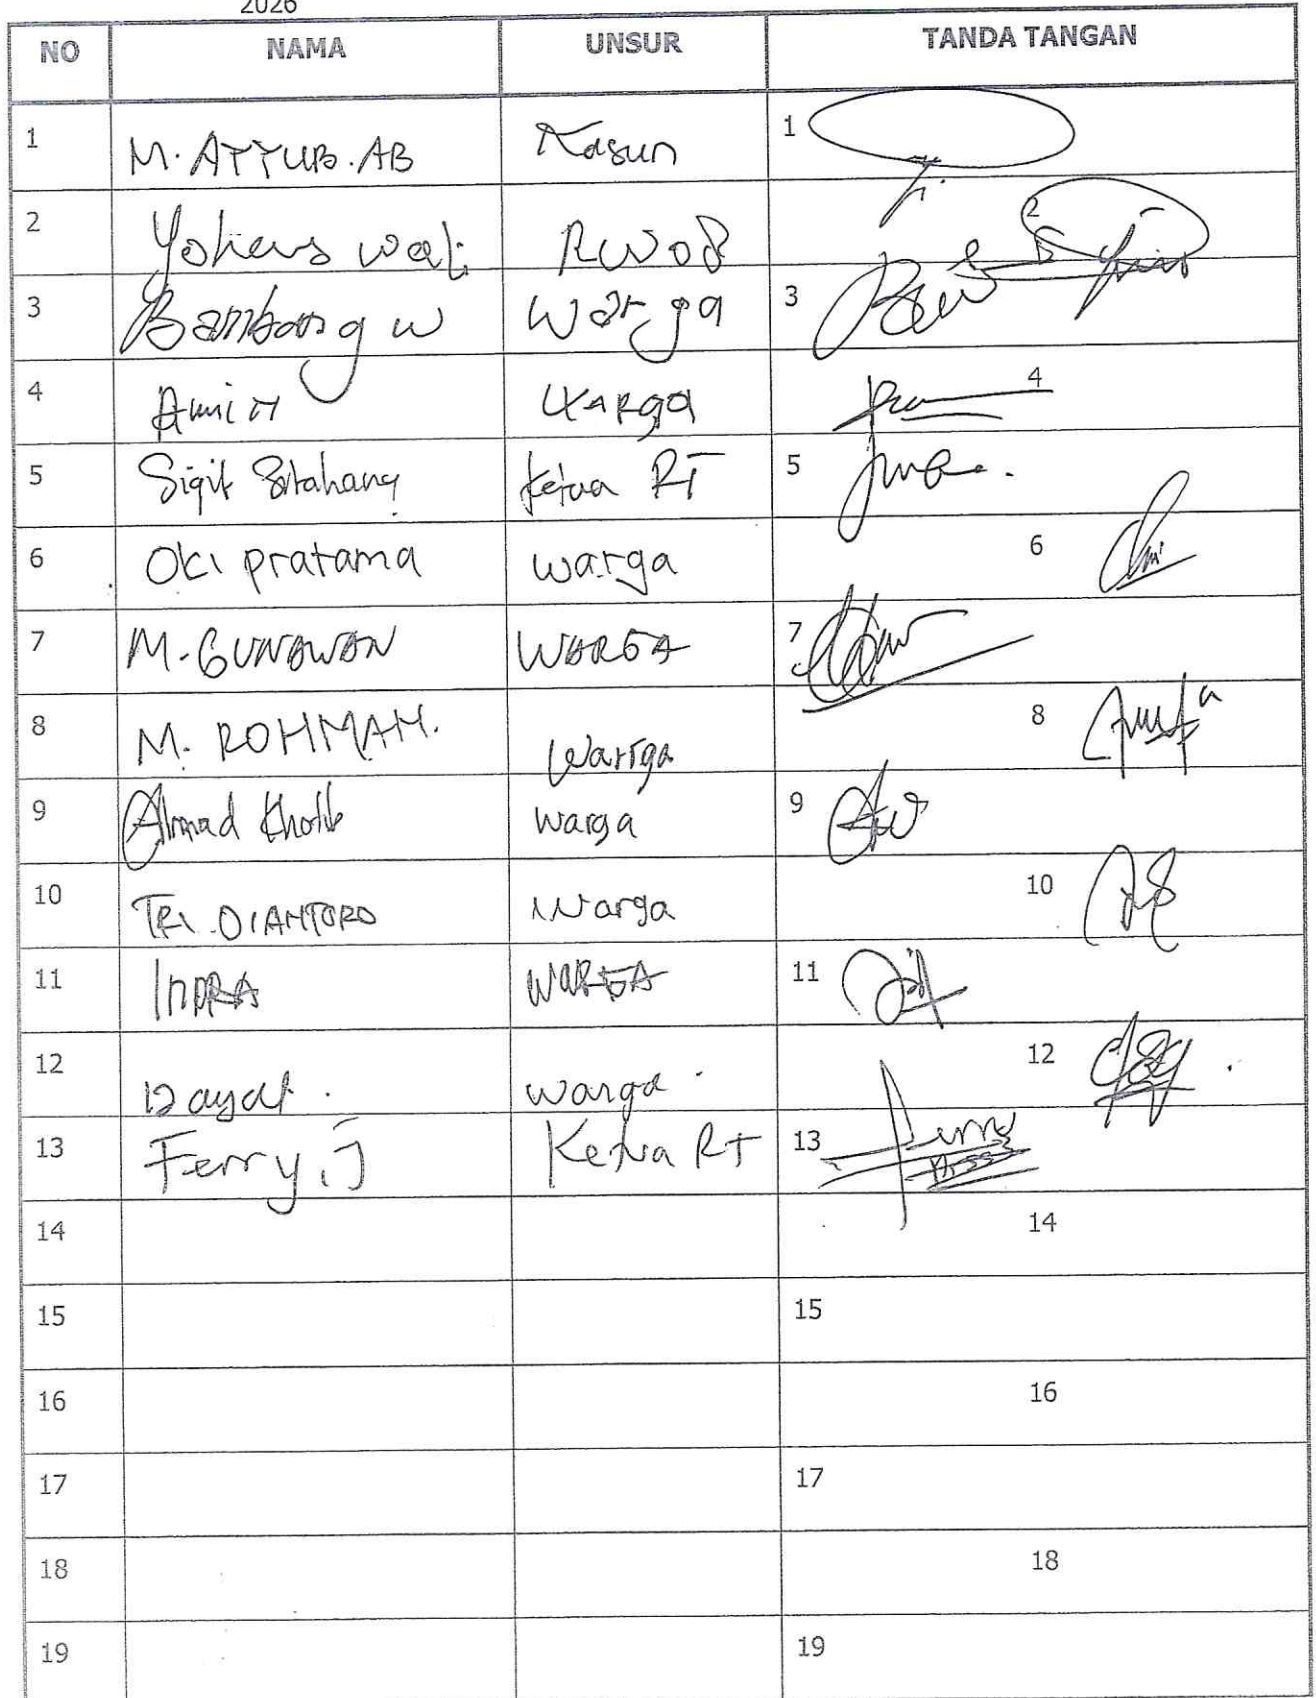 2026
NO NAMA UNSUR TANDA TANGAN
1 M. AYYUB. AB Kasun 1
2 Yohens wali RW 08 2
3 Bambang w warga 3
4 Amin WARga 4
5 Sigit Sitahang ketua RT 5
6 Oki pratama warga 6
7 M. GUNAWAN WARGA 7
8 M. ROHMAH. warga 8
9 Ahmad Kholib warga 9
10 TRI. DIANTORO warga 10
11 INDRA WARGA 11
12 Dayat. warga. 12
13 Ferry, J Ketua RT 13
14 14
15 15
16 16
17 17
18 18
19 19